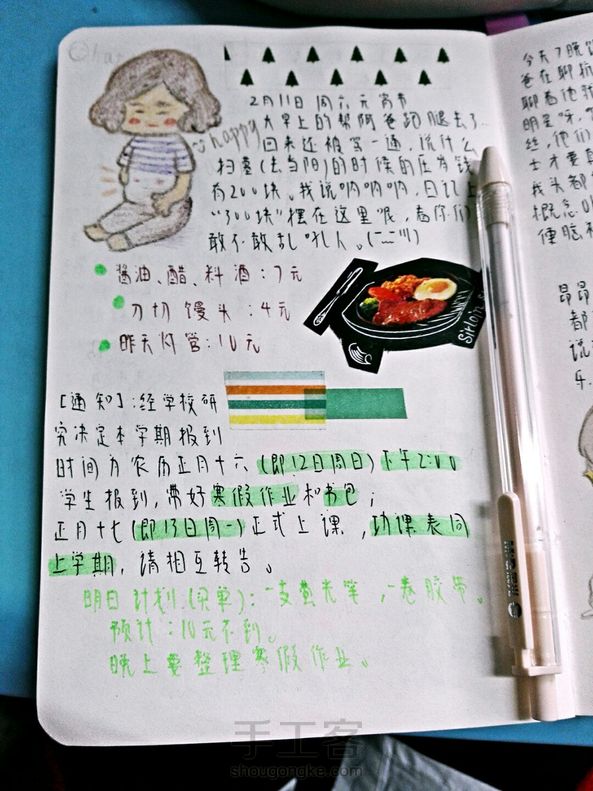 happy
2月11日 周六 元宵节
大早上的帮阿爸跑腿去了…
回来还被骂一通,说什么
扫墓(去当阳)的时候的压岁钱
有200块。我说呐呐呐,日记上
"300块"摆在这里呢,看你们
敢不敢乱吼人。
酱油、醋、料酒:7元
刀切馒头:4元
昨天灯管:10元
Sirloin S
[通知]:经学校研
究决定本学期报到
时间为农历正月十六(即12日周日)下午2:00
学生报到,带好寒假作业和书包;
正月十七(即13日周一)正式上课,功课表同
上学期,请相互转告。
明日计划:(买单):一支荧光笔,一卷胶带。
预计:10元不到。
晚上要整理寒假作业。
今天7晚饭
爸在聊
聊着他
明星呀,
丝,他们
士才要
我头都
概念
便脸
昂昂
都
说
乐
手工客
shougongke.com